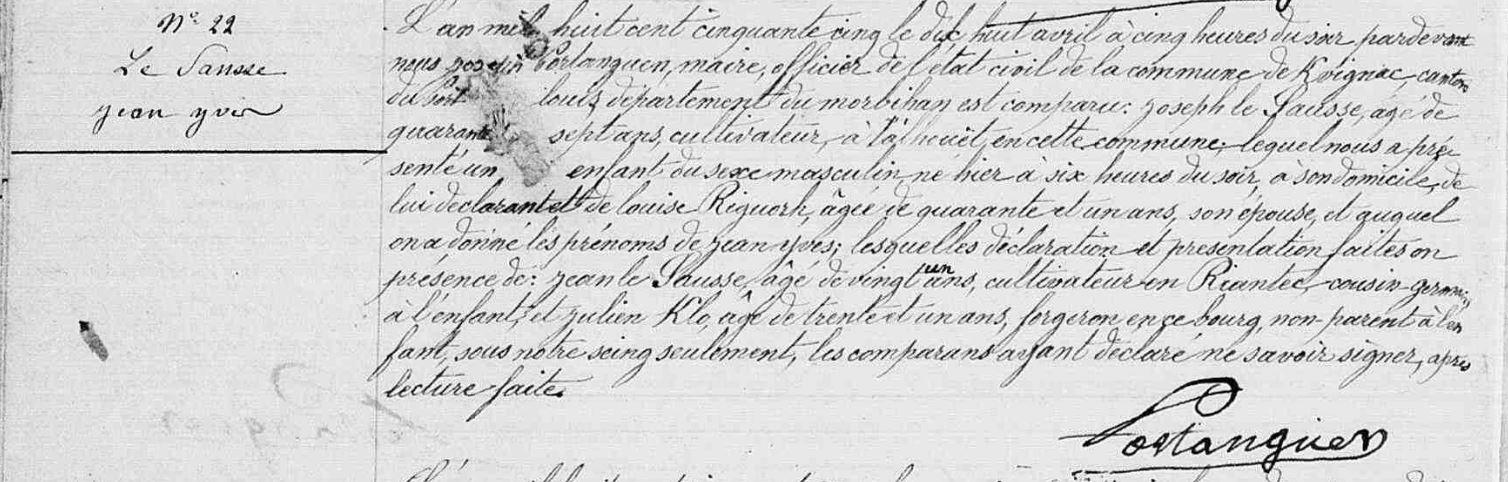 Nº 22
Le Sausse
jean yves
L'an mil huit cent cinquante cinq le dix huit avril à cinq heures du soir pardevant
nous joseph Portanguen, maire, officier de l'état civil de la commune de Kvignac, canton
du Port louis, département du morbihan est comparu: joseph le Sausse, agé de
quarante sept ans, cultivateur, à en cette commune; lequel nous a pré
senté un enfant du sexe masculin né hier à six heures du soir, à son domicile, de
lui déclarant et de louise Riguorh, âgée de quarante et un ans, son épouse, et auquel
on a donné les prénoms de jean yves; lesquelles déclaration et présentation faites en
présence de: jean le Sausse, âgé de vingt un ans, cultivateur en Riantec, cousin-germain
à l'enfant, et julien Klo, âgé de trente et un ans, forgeron en ce bourg, non-parent à l'en
fant, sous notre seing seulement, les comparans ayant déclaré ne savoir signer, après
lecture faite.
Portanguen